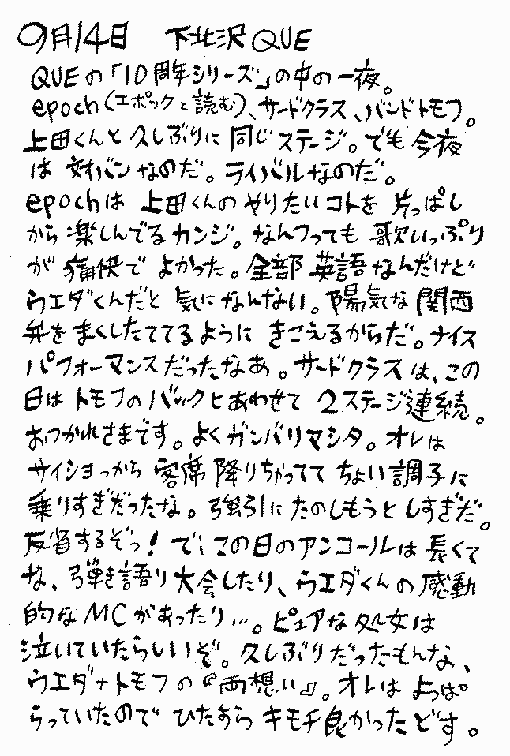 9月14日 下北沢QUE
QUEの「10周年シリーズ」の中の一夜。
epoch(エポックと読む)、サードクラス、バンドトモフ。
上田くんと久しぶりに同じステージ。でも今夜
は対バンなのだ。ライバルなのだ。
epochは上田くんのやりたいコトを片っぱし
から楽しんでるカンジ。なんつっても歌いっぷり
が痛快でよかった。全部英語なんだけど
ウエダくんだと気になんない。陽気な関西
弁をまくしたててるようにきこえるからだ。ナイス
パフォーマンスだったなあ。サードクラスは、この
日はトモフのバックとあわせて2ステージ連続。
おつかれさまです。よくガンバリマシタ。オレは
サイショっから客席降りちゃっててちょい調子に
乗りすぎだったな。強引にたのしもうとしすぎだ。
反省するぞっ!で、この日のアンコールは長くて
な、弾き語り大会したり、ウエダくんの感動
的なMCがあったり…。ピュアな処女は
泣いていたらしいぞ。久しぶりだったもんな、
ウエダ+トモフの『両想い』。オレはよっぱ
らっていたのでひたすらキモチ良かったどす。